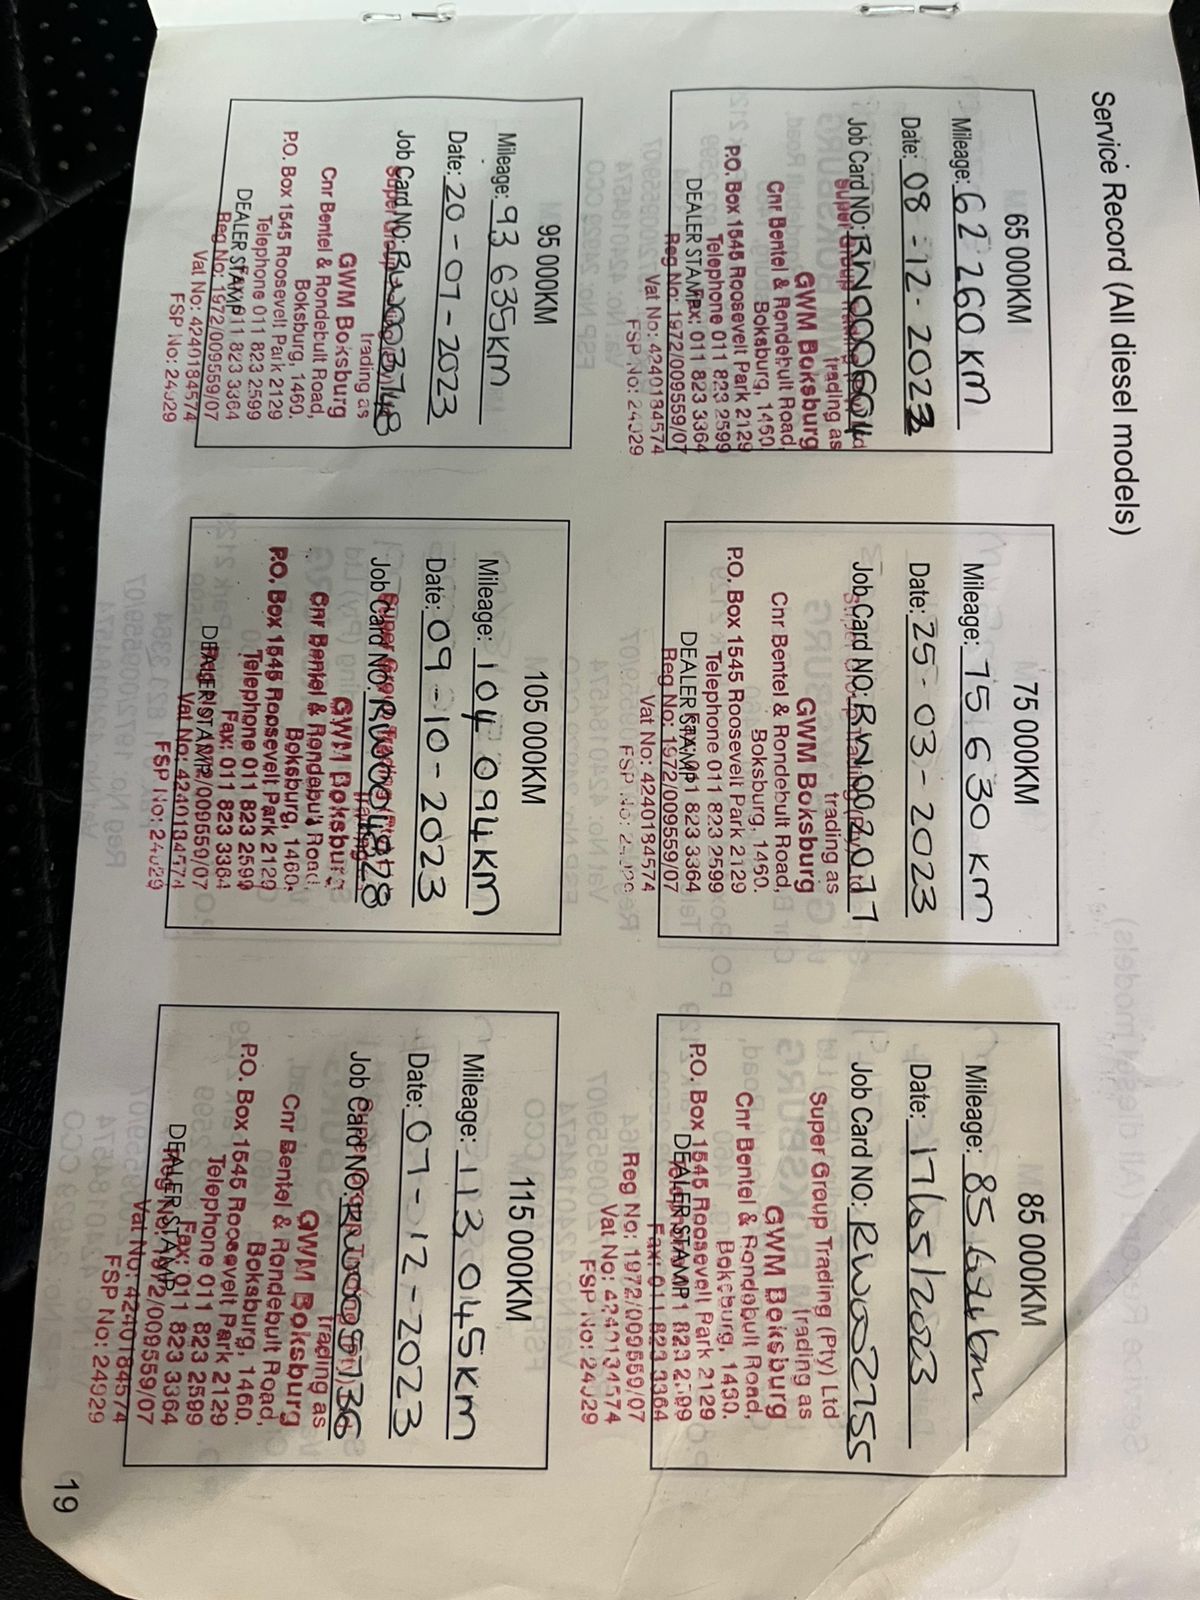 Service Record (All diesel models)
65 000KM
Mileage: 62 260 KM
Date: 08 -12- 2022
Job Card NO:
trading as
GWM Boksburg
Cnr Bentel & Rondebult Road,
Boksburg, 1460.
P.O. Box 1545 Roosevelt Park 2129
Telephone 011 823 2599
DEALER STAMP Fax: 011 823 3364
Reg No: 1972/009559/07
Vat No: 4240184574
FSP No: 24929
75 000KM
Mileage: 75 630 KM
Date: 25-03-2023
Job Card NO: RW002077
trading as
GWM Boksburg
Cnr Bentel & Rondebult Road,
Boksburg, 1460.
P.O. Box 1545 Roosevelt Park 2129
Telephone 011 823 2599
DEALER STAMP 011 823 3364
Reg No: 1972/009559/07
Vat No: 4240184574
FSP No:
85 000KM
Mileage:
Date: 17/05/2023
Job Card NO: RW002755
Super Group Trading (Pty) Ltd
trading as
GWM Boksburg
Cnr Bentel & Rondebult Road,
Boksburg, 1460.
P.O. Box 1545 Roosevelt Park 2129
DEALER STAMP 011 823 2599
Fax: 011 823 3364
Reg No: 1972/009559/07
Vat No: 4240184574
FSP No: 24929
95 000KM
Mileage: 93 635km
Date: 20-07-2023
Job Card NO: RW003748
trading as
GWM Boksburg
Cnr Bentel & Rondebult Road,
Boksburg, 1460.
P.O. Box 1545 Roosevelt Park 2129
Telephone 011 823 2599
DEALER STAMP 011 823 3364
Reg No: 1972/009559/07
Vat No: 4240184574
FSP No: 24929
105 000KM
Mileage: 104 094KM
Date: 09-10-2023
Job Card NO: RW004828
GWM Boksburg
Cnr Bentel & Rondebult Road,
Boksburg, 1460.
P.O. Box 1545 Roosevelt Park 2129
Telephone 011 823 2599
Fax: 011 823 3364
DEALER STAMP 2/009559/07
Vat No: 4240184574
FSP No: 24929
115 000KM
Mileage: 113 045KM
Date: 07-12-2023
Job Card NO:
trading as
GWM Boksburg
Cnr Bentel & Rondebult Road,
Boksburg, 1460.
P.O. Box 1545 Roosevelt Park 2129
Telephone 011 823 2599
Fax: 011 823 3364
DEALER STAMP 72/009559/07
Vat No: 4240184574
FSP No: 24929
19